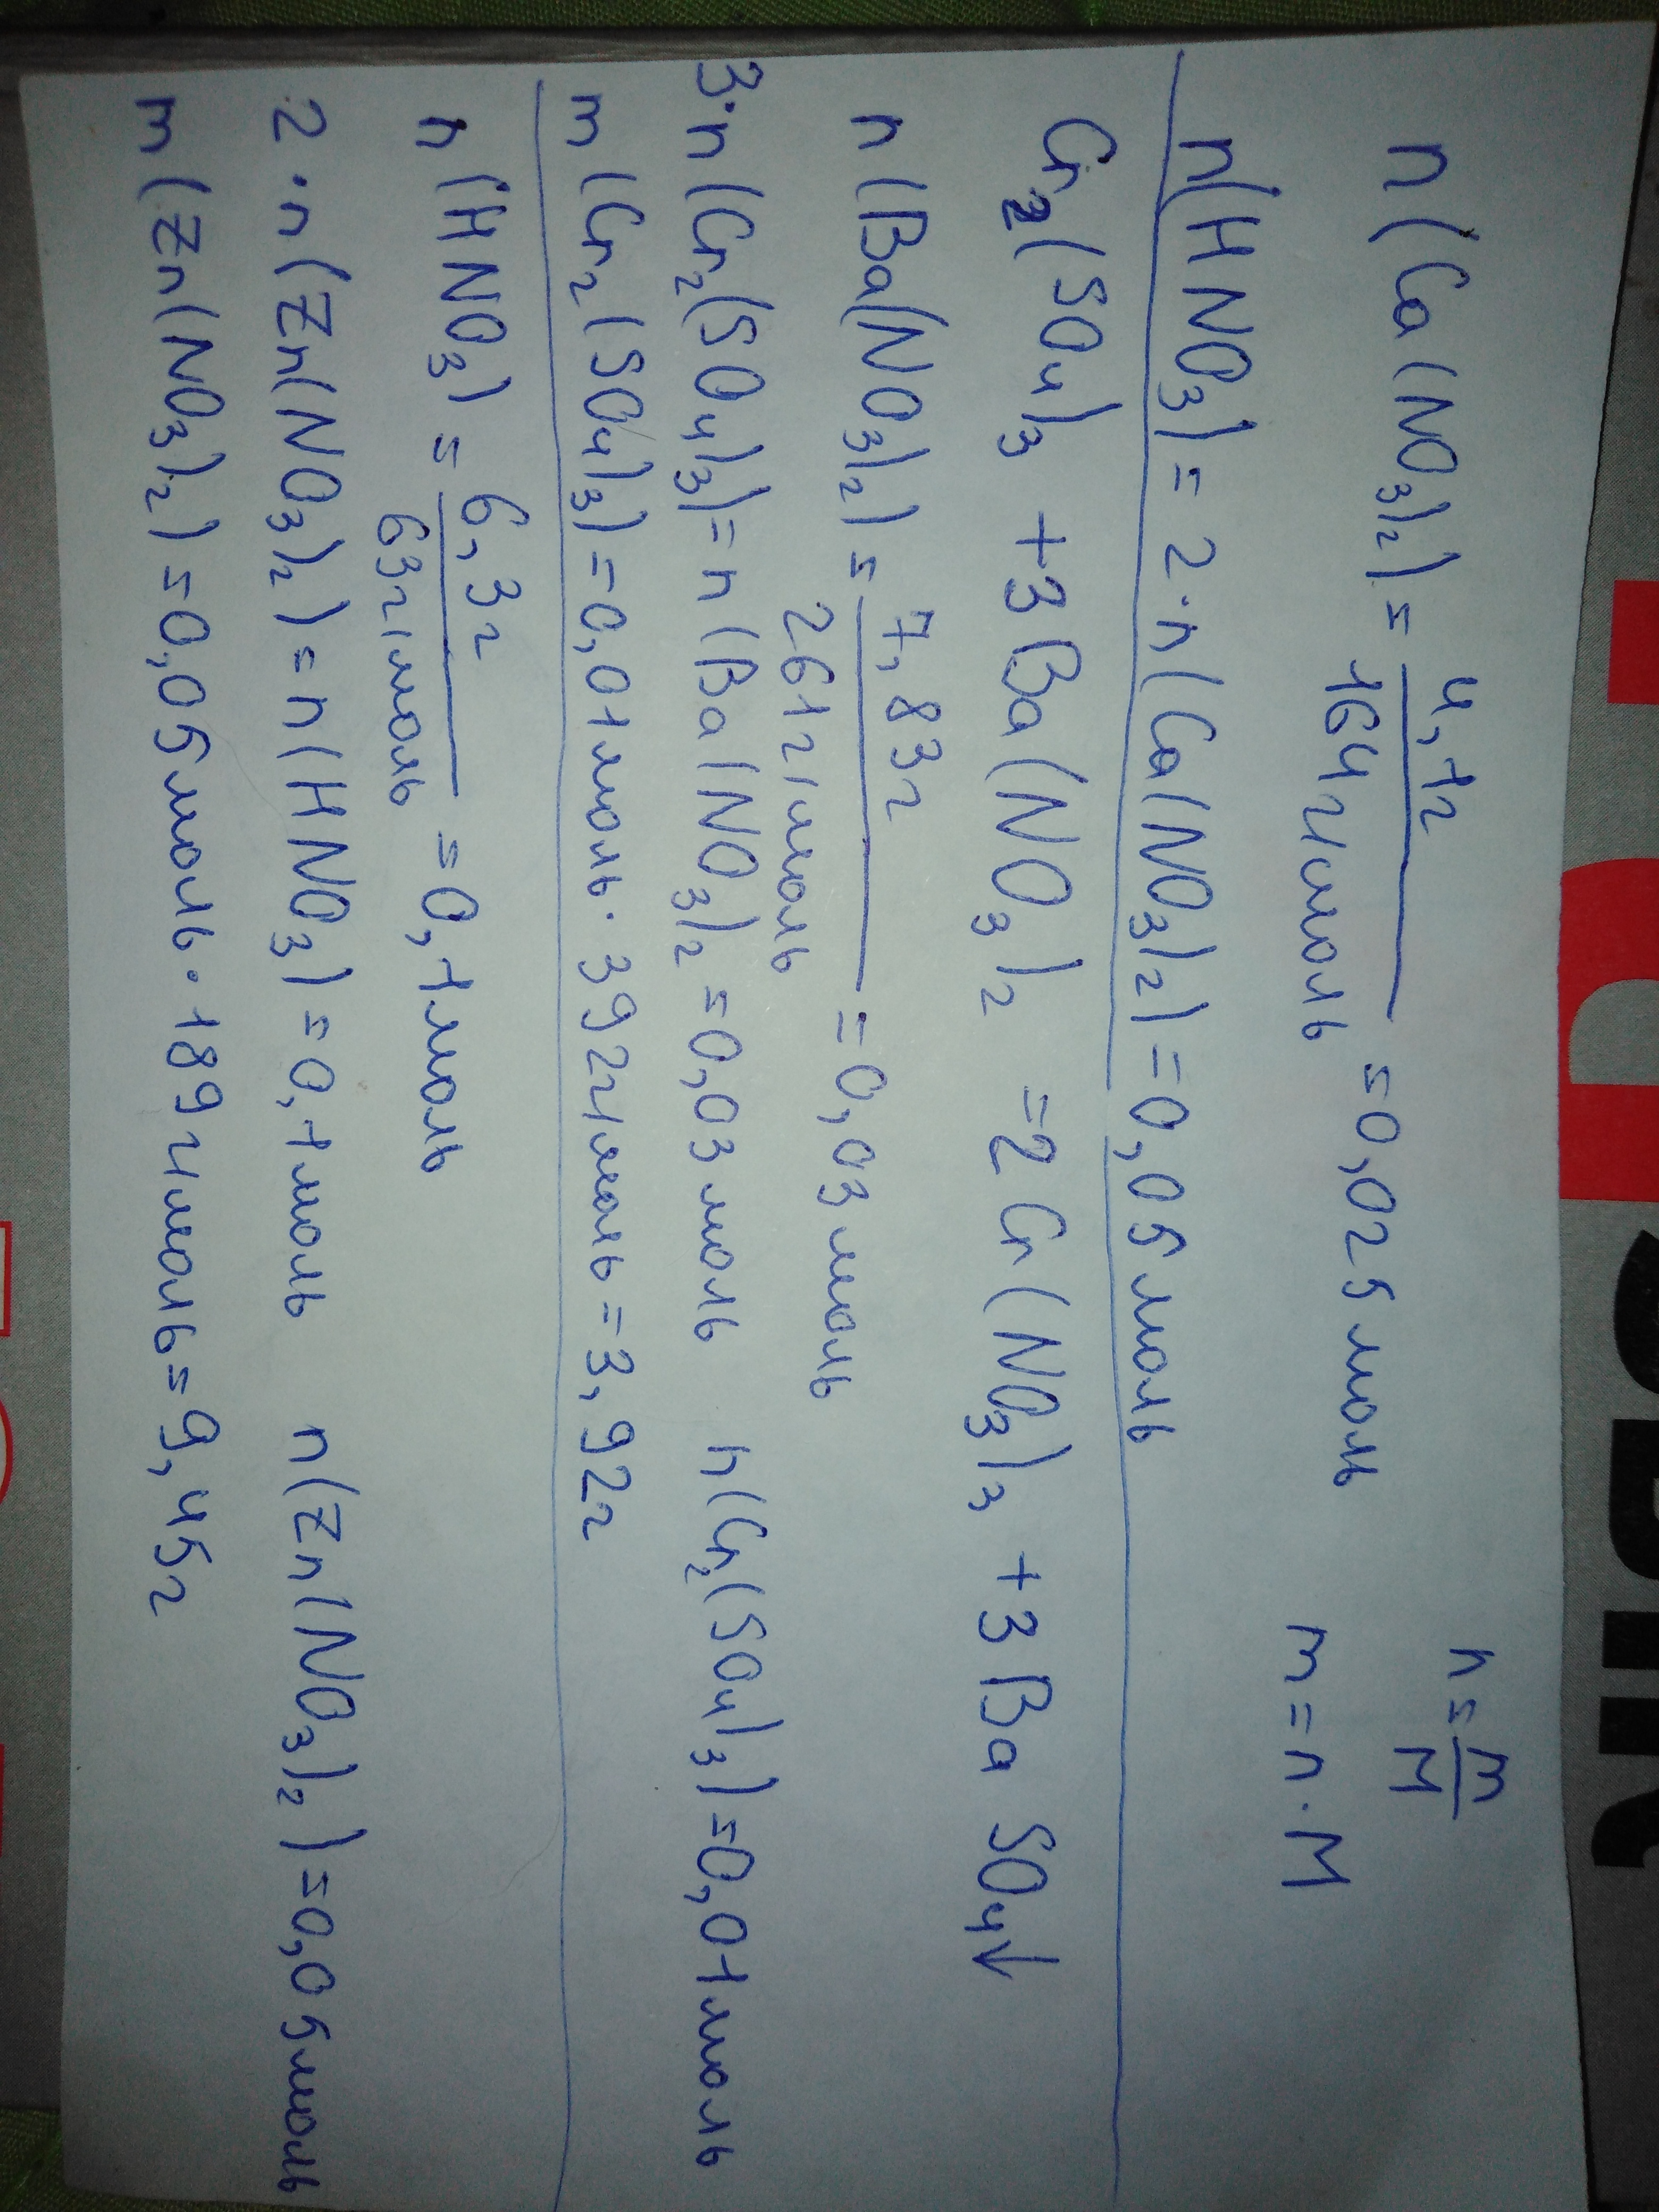 n(Ca(NO₃)₂) = 4,1г / 164г/моль = 0,025 моль
n = m / M
m = n · M
n(HNO₃) = 2 · n(Ca(NO₃)₂) = 0,05 моль
Cr₂(SO₄)₃ + 3Ba(NO₃)₂ = 2Cr(NO₃)₃ + 3BaSO₄↓
n(Ba(NO₃)₂) = 7,83г / 261г/моль = 0,03 моль
3·n(Cr₂(SO₄)₃) = n(Ba(NO₃)₂ = 0,03 моль n(Cr₂(SO₄)₃) = 0,01 моль
m(Cr₂(SO₄)₃) = 0,01 моль · 392г/моль = 3,92г
n(HNO₃) = 6,3г / 63г/моль = 0,1 моль
2 · n(Zn(NO₃)₂) = n(HNO₃) = 0,1 моль n(Zn(NO₃)₂) = 0,05 моль
m(Zn(NO₃)₂) = 0,05 моль · 189г/моль = 9,45г